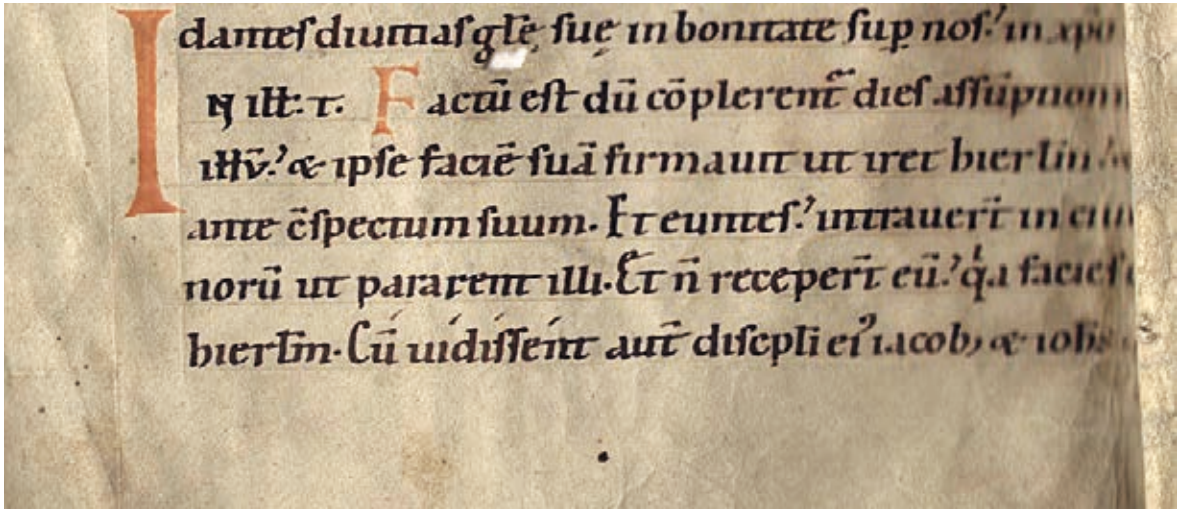 dantes diuitias glē suę in bonitate sup nos. in xpo
IN illt. F actū est dū cōplerent dies assūption
illiv. & ipse faciē suā firmauit ut iret hierlm
ante c̄spectum suum. Et euntes intrauer̄t in ciui
norū ut pararent illi. Et n̄ receper̄t eū q̇a facies
hierlm. Cū uidissent aut̄ discpli ei' iacob; & iohs